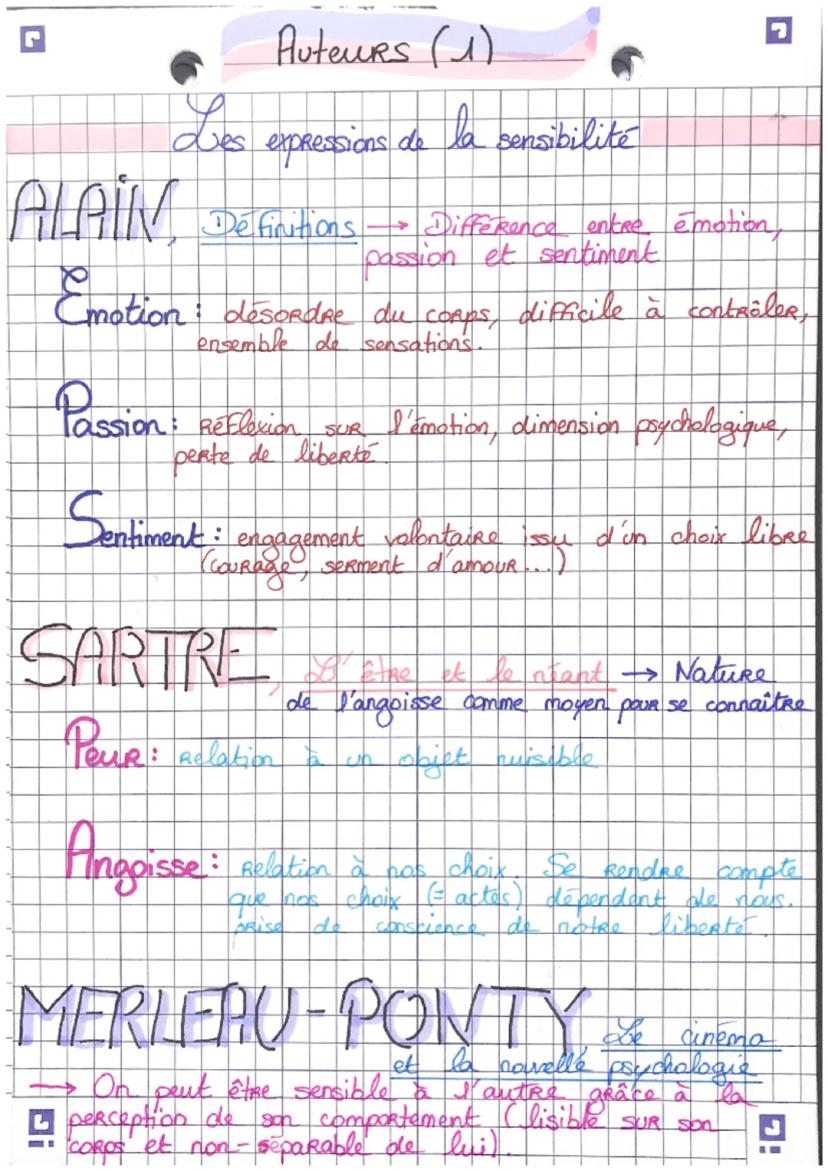 Auteurs (1)
Les expressions de la sensibilité
ALAIN, Définitions → Différence entre émotion,
passion et sentiment
Emotion : désordre du corps, difficile à contrôler,
ensemble de sensations.
Passion : Réflexion sur l'émotion, dimension psychologique,
perte de liberté.
Sentiment : engagement volontaire issu d'un choix libre
(courage, serment d'amour...)
SARTRE, L'être et le néant → Nature
de l'angoisse comme moyen pour se connaître
Peur : relation à un objet nuisible
Angoisse : Relation à nos choix. Se rendre compte
que nos choix (= actes) dépendent de nous.
prise de conscience de notre liberté.
MERLEAU-PONTY, Le cinéma
et la nouvelle psychologie
→ On peut être sensible à l'autre grâce à la
perception de son comportement (lisible sur son
corps et non-séparable de lui).